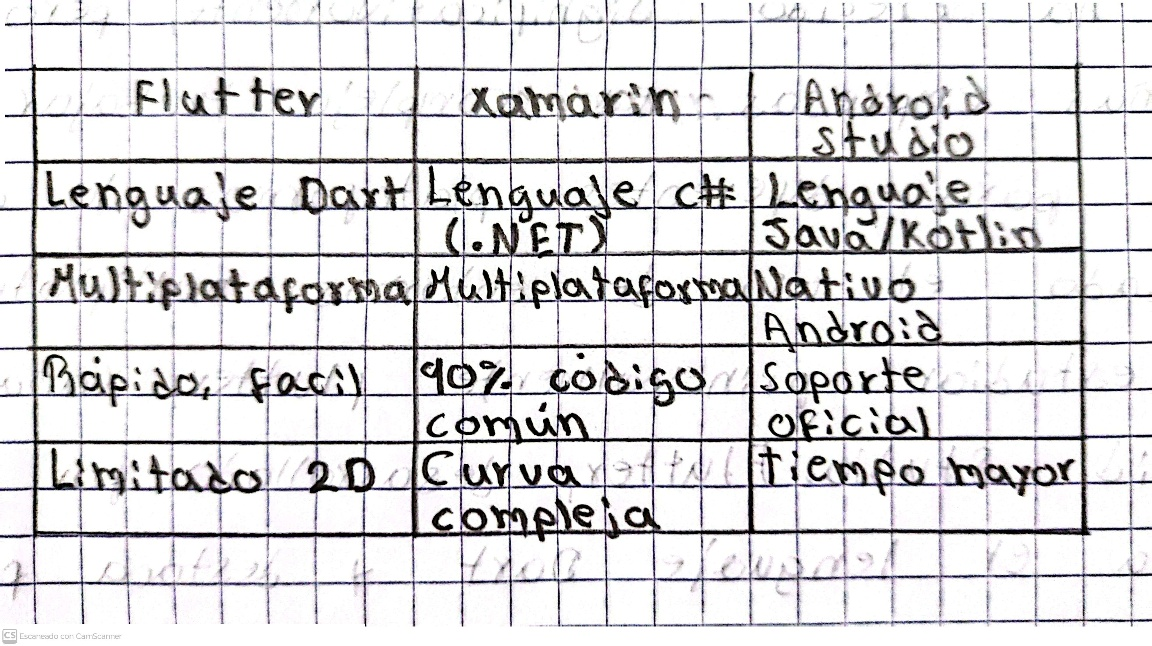 Flutter
xamarin
Android
Studio
Lenguaje Dart
Lenguaje C#
(.NET)
Lenguaje
Java/Kotlin
Multiplataforma
Multiplataforma
Nativo
Android
Rápido, facil
90% código
común
Soporte
oficial
Limitado 2D
Curva
compleja
tiempo mayor
CS Escaneado con CamScanner